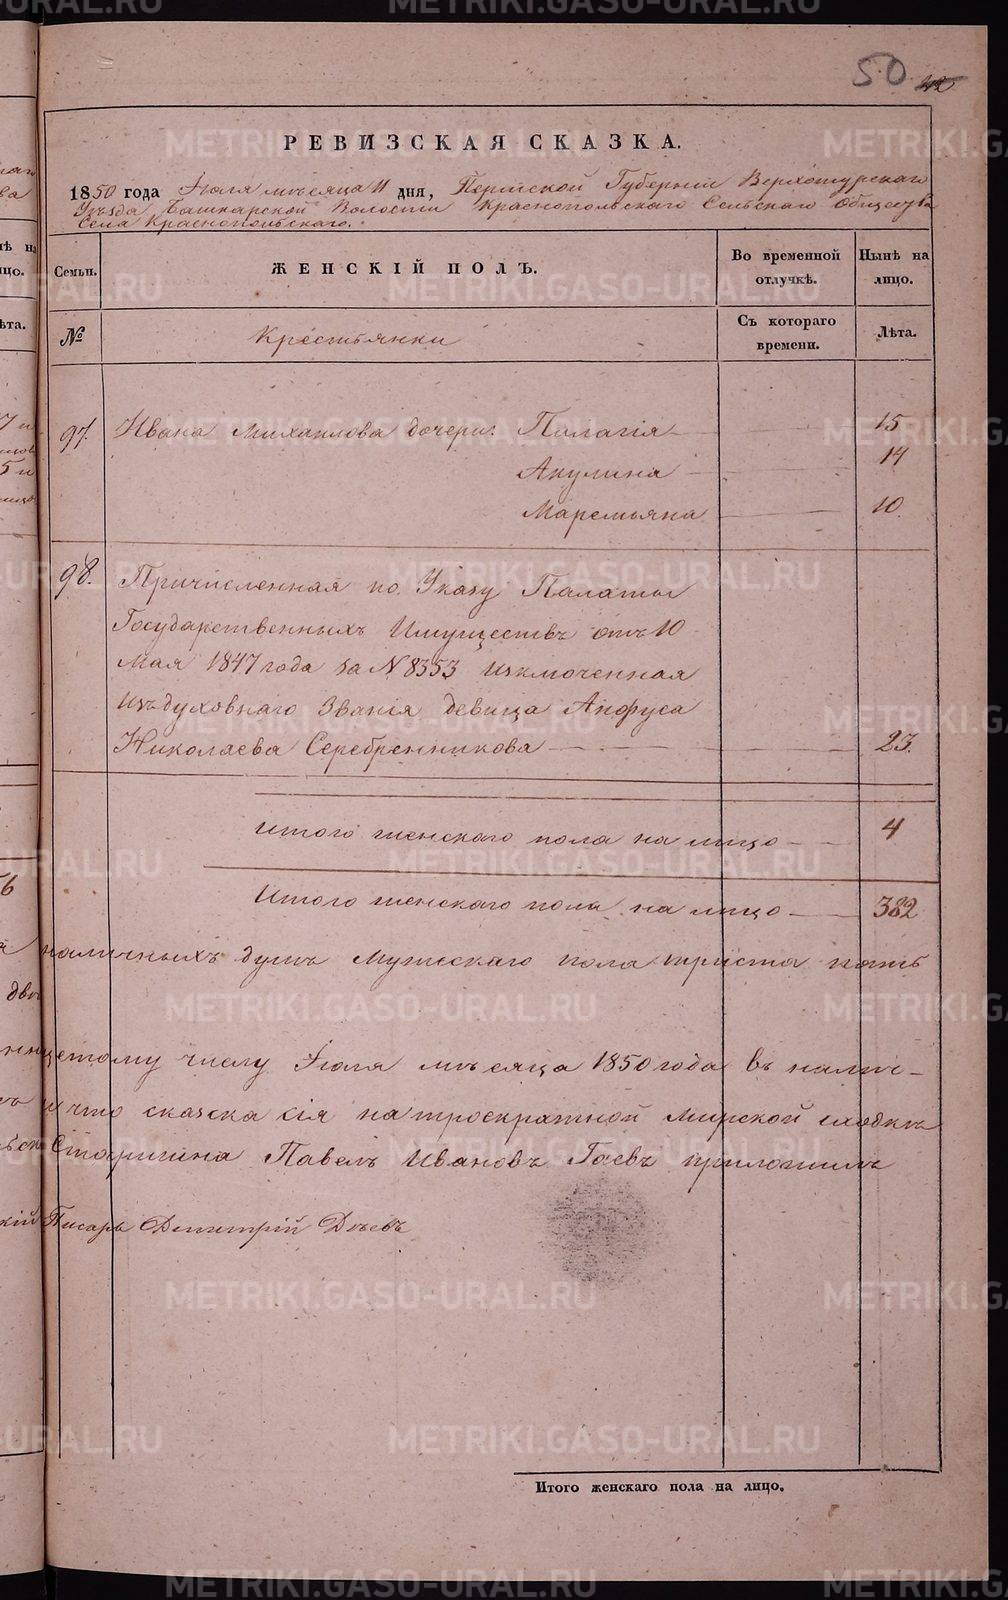 50
РЕВИЗСКАЯ СКАЗКА.
1850 года Іюля мѣсяца 11 дня, Пермской Губерніи Верхотурскаго
Уѣзда Башкарской Волости Краснопольскаго Сельскаго Общества
Села Краснопольскаго.
Семьи. ЖЕНСКІЙ ПОЛЪ. Во временной отлучкѣ. Нынѣ на лицо.
№ Крестьянки Съ котораго времени. Лѣта.
97. Ивана Михаилова дочери: Пилагія 15
Акулина 14
Маремьяна 10
98. Причисленная по Указу Палаты
Государственныхъ Имуществъ отъ 10
Мая 1847 года за N 8353 изключенная
изъ духовнаго Званія девица Анфуса
Николаева Серебренникова 23.
Итого женскаго пола на лицо 4
Итого женскаго пола на лицо 382
наличныхъ душъ Мужескаго пола триста пять
цетому числу Іюля мѣсяца 1850 года въ налич-
и что сказка сія на троекратной Мирской сходкѣ
Старшина Павелъ Ивановъ Гаевъ приложилъ
Писарь Димитрій Дѣевъ
Итого женскаго пола на лицо.
METRIKI.GASO-URAL.RU